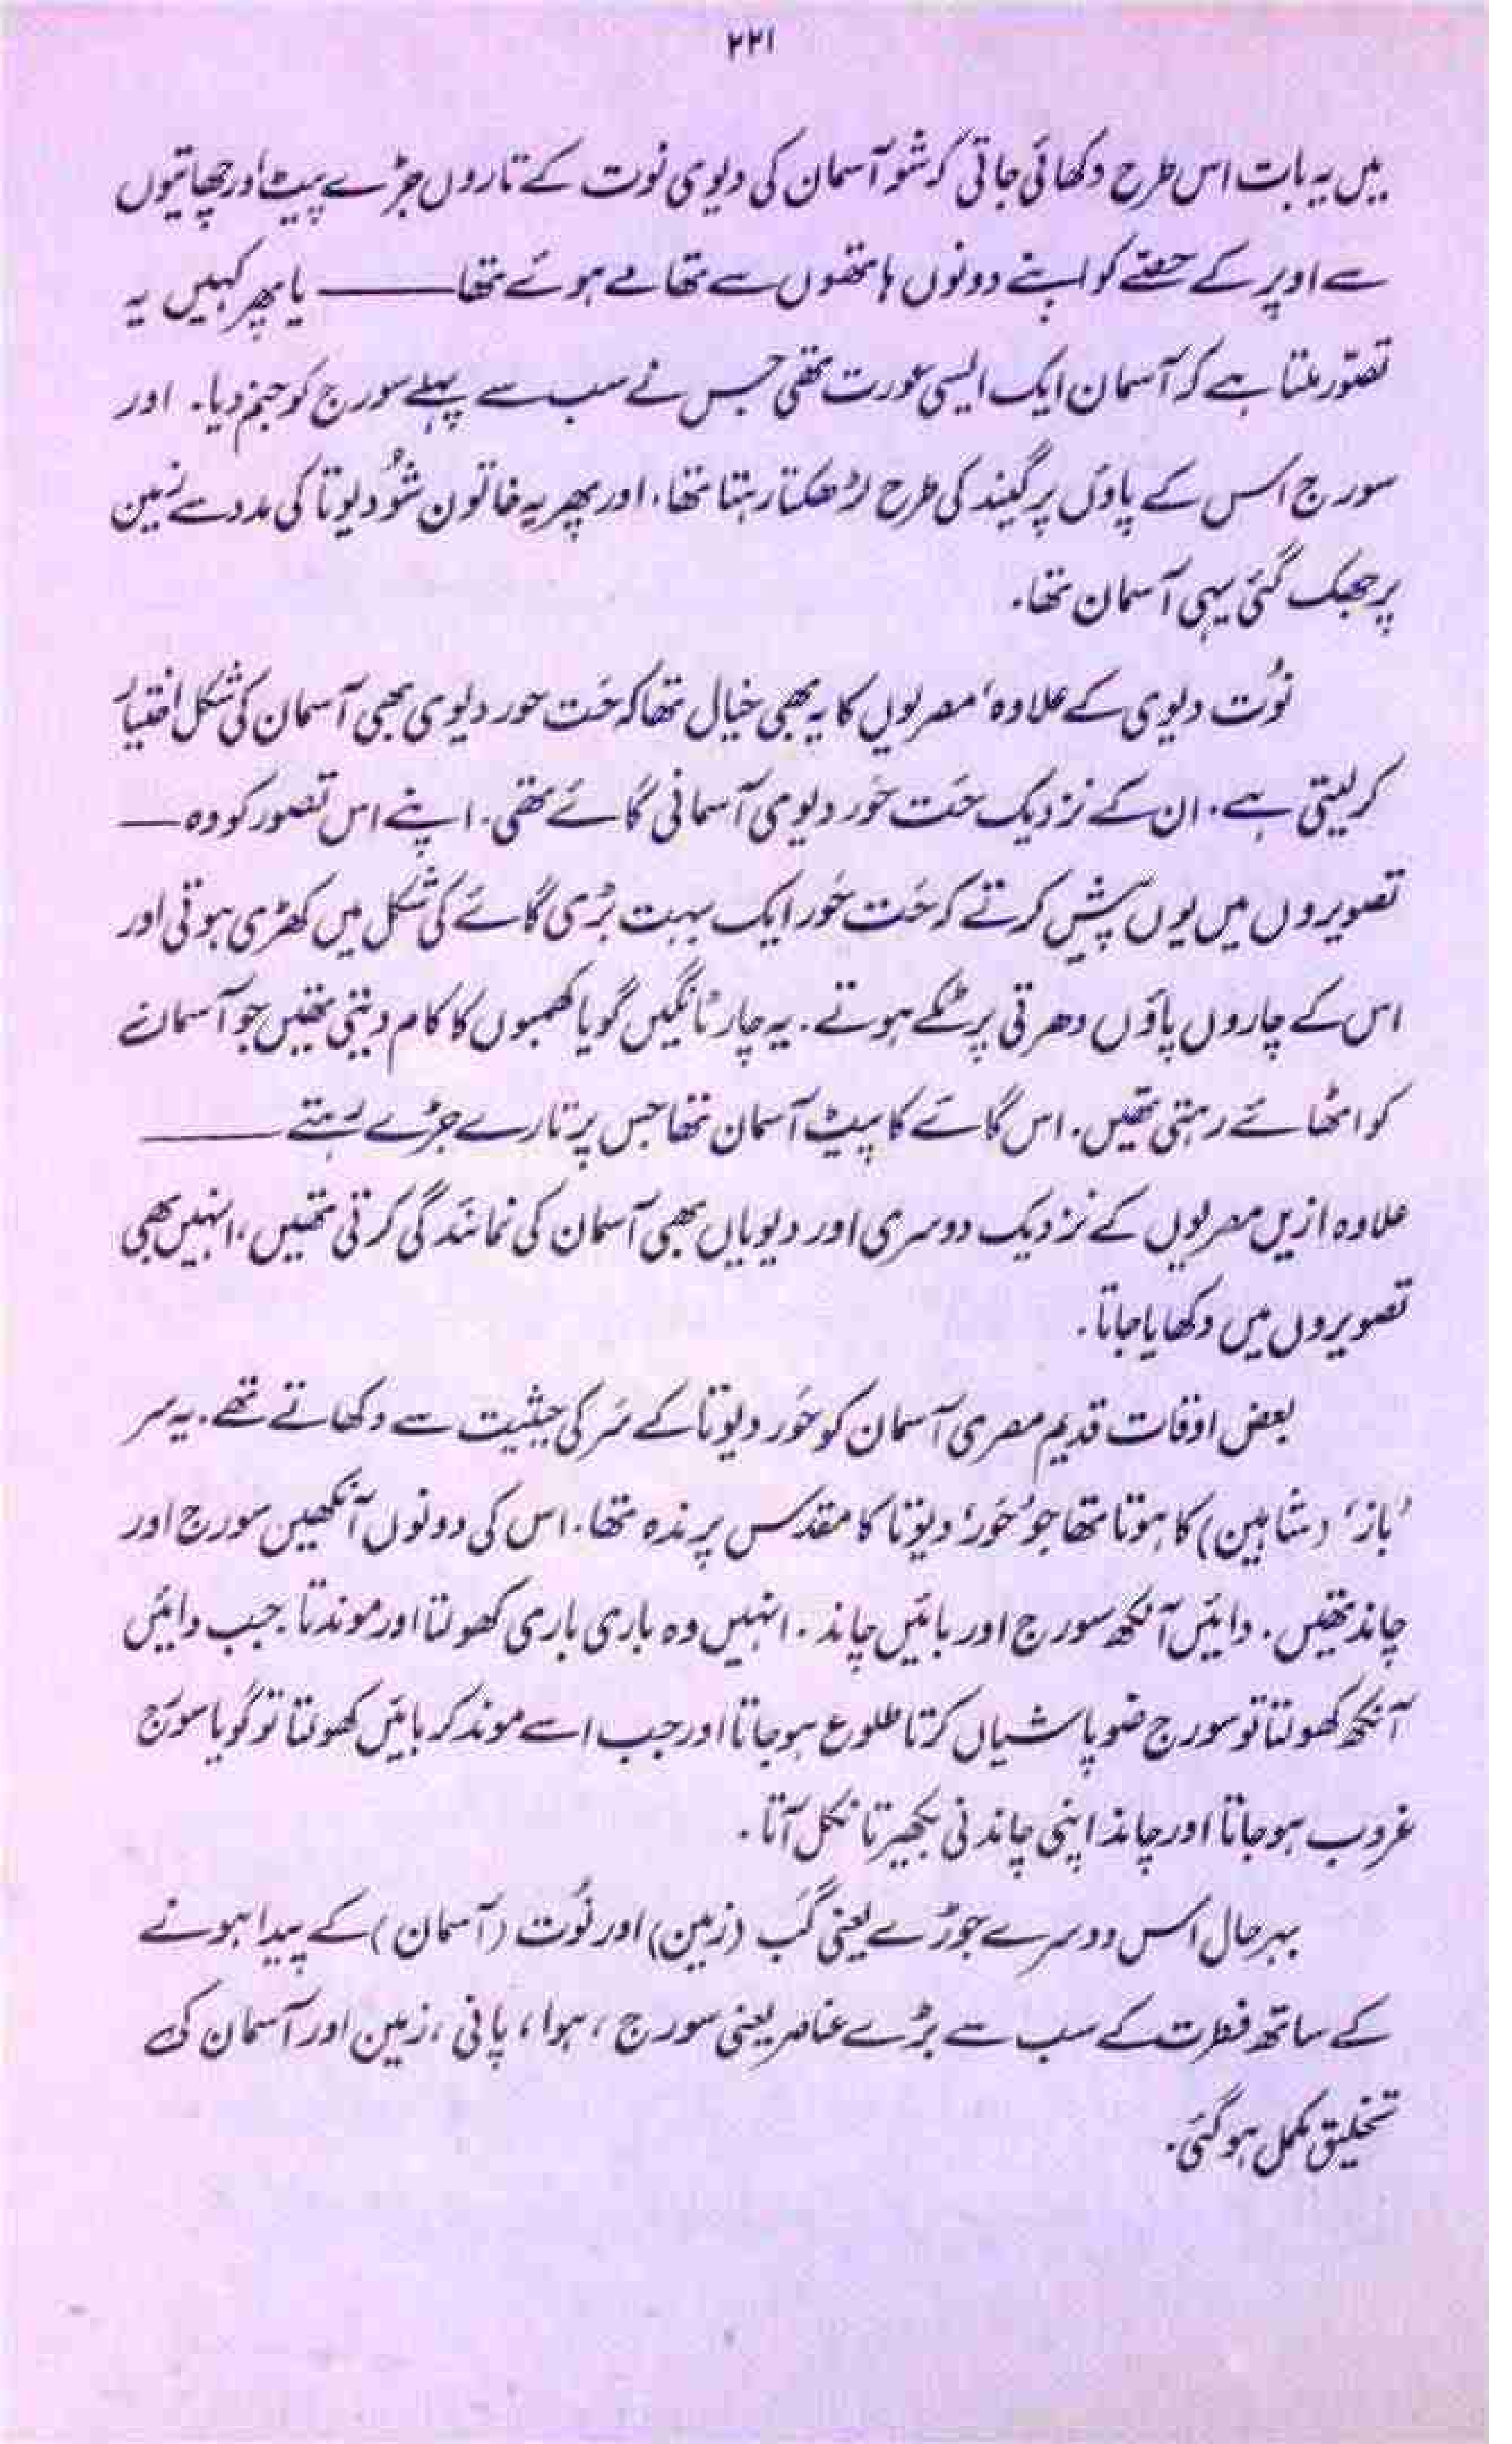 ۲۲۱
میں یہ بات اس طرح دکھائی جاتی کہ شو آسمان کی دیوی نوت کے تاروں جڑے پیٹ اور چھاتیوں
سے اوپر کے حصّے کو اپنے دونوں ہاتھوں سے تھامے ہوئے تھا ــــــــ یا پھر کہیں یہ
تصوّر ملتا ہے کہ آسمان ایک ایسی عورت تھی جس نے سب سے پہلے سورج کو جنم دیا۔ اور
سورج اس کے پاؤں پر گیند کی طرح لڑھکتا رہتا تھا، اور پھر یہ خاتون شُو دیوتا کی مدد سے زمین
پر جھک گئی یہی آسمان تھا۔
نُوت دیوی کے علاوہ، مصریوں کا یہ بھی خیال تھا کہ حَت حور دیوی بھی آسمان کی شکل اختیار
کر لیتی ہے۔ ان کے نزدیک حَت حَور دیوی آسمانی گائے تھی۔ اپنے اس تصور کو وہ ــــ
تصویروں میں یوں پیش کرتے کہ حَت حَور ایک بہت بڑی گائے کی شکل میں کھڑی ہوتی اور
اس کے چاروں پاؤں دھرتی پر ٹکے ہوتے۔ یہ چار ٹانگیں گویا کھمبوں کا کام دیتی تھیں جو آسمان
کو اٹھائے رہتی تھیں۔ اس گائے کا پیٹ آسمان تھا جس پر تارے جڑے رہتے ــــــــ
علاوہ ازیں مصریوں کے نزدیک دوسری اور دیویاں بھی آسمان کی نمائندگی کرتی تھیں، انہیں بھی
تصویروں میں دکھایا جاتا۔
بعض اوقات قدیم مصری آسمان کو حَور دیوتا کے سَر کی حیثیت سے دکھاتے تھے۔ یہ سر
'باز' (شاہین) کا ہوتا تھا جو 'حَور' دیوتا کا مقدس پرندہ تھا۔ اس کی دونوں آنکھیں سورج اور
چاند تھیں۔ دائیں آنکھ سورج اور بائیں چاند۔ انہیں وہ باری باری کھولتا اور موندتا۔ جب دائیں
آنکھ کھولتا تو سورج ضوپاشیاں کرتا طلوع ہو جاتا اور جب اسے موند کر بائیں کھولتا تو گویا سورج
غروب ہو جاتا اور چاند اپنی چاندنی بکھیرتا نکل آتا۔
بہرحال اس دوسرے جوڑے یعنی گَب (زمین) اور نُوت (آسمان) کے پیدا ہونے
کے ساتھ فطرت کے سب سے بڑے عناصر یعنی سورج، ہوا، پانی، زمین اور آسمان کی
تخلیق مکمل ہو گئی۔